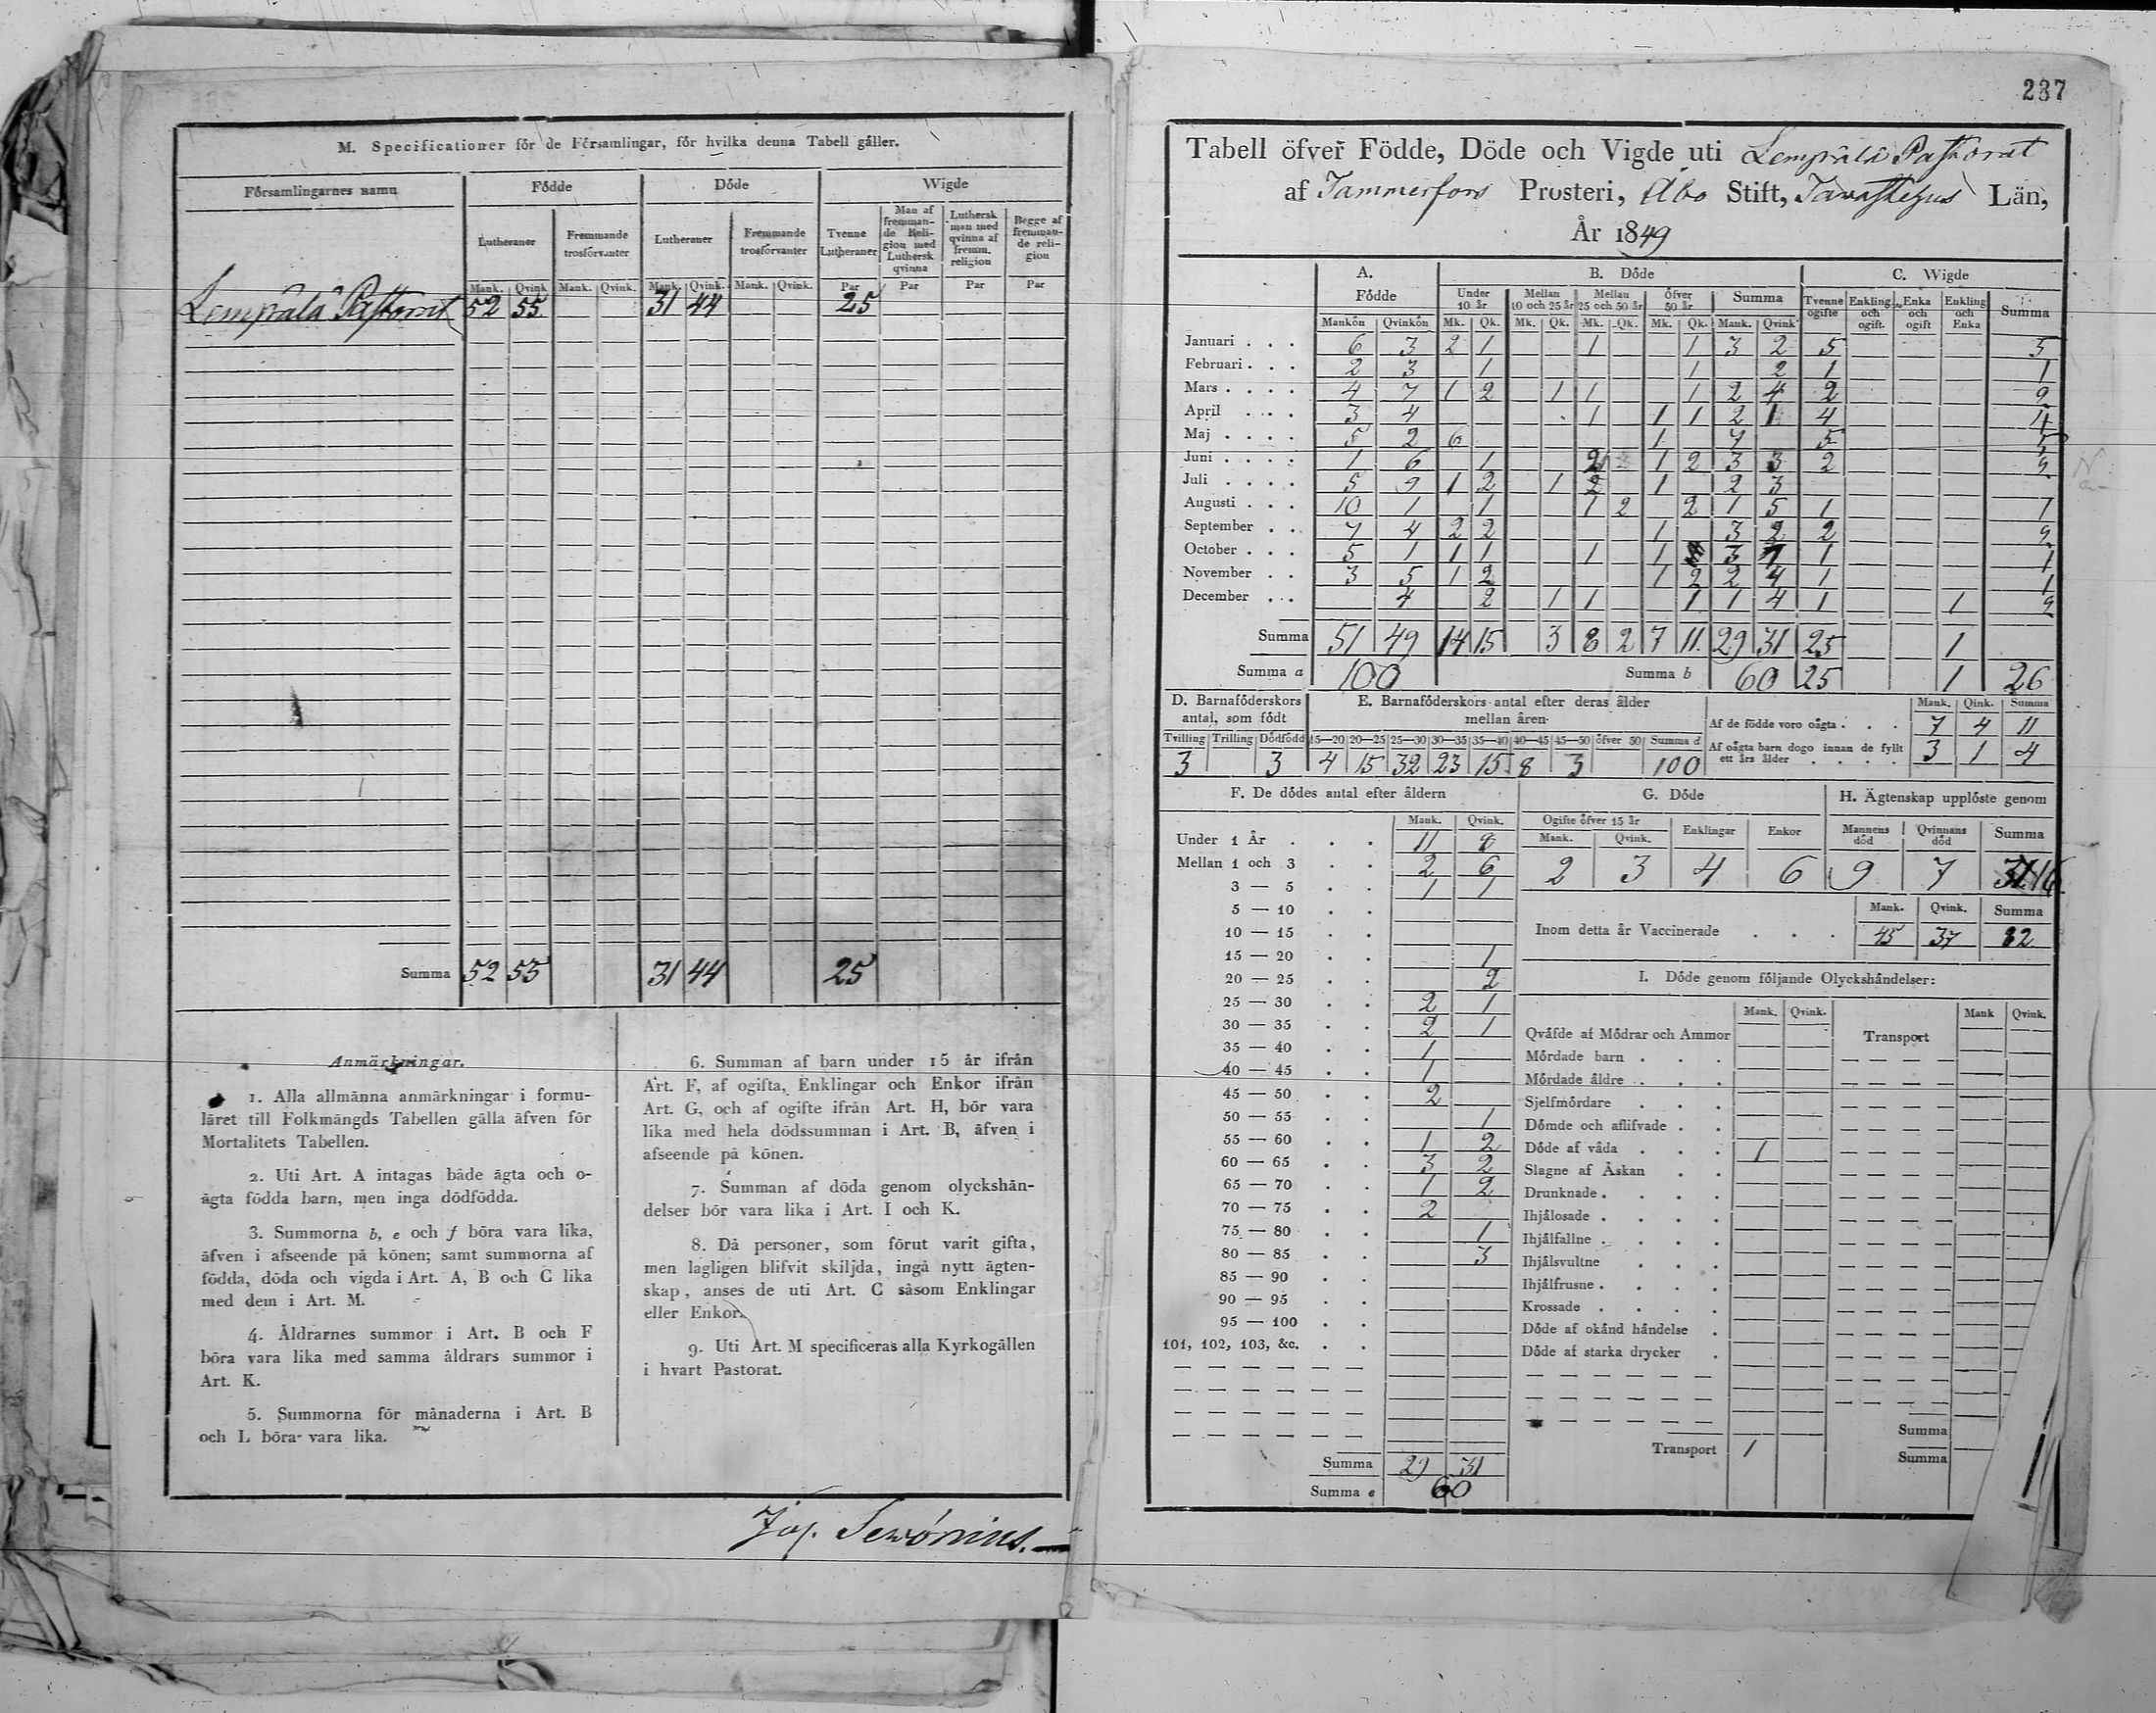 M. Specificationer för de Församlingar, för hvilka denna Tabell gäller.
Församlingarnes namn | Födde | Döde | Wigde
Lutheraner | Fremmande trosförvanter | Lutheraner | Fremmande trosförvanter | Tvenne Lutheraner | Man af fremman-de Reli-gion med Luthersk qvinna | Luthersk man med qvinna af fremm. religion | Begge af fremman-de reli-gion
Mank. Qvink. Mank. Qvink. Mank. Qvink. Mank. Qvink. Par Par Par Par
Lempälä Pastorat 52 55 31 44 25
Summa 52 55 31 44 25
Anmärkningar.
1. Alla allmänna anmärkningar i formu-
läret till Folkmängds Tabellen gälla äfven för
Mortalitets Tabellen.
2. Uti Art. A intagas både ägta och o-
ägta födda barn, men inga dödfödda.
3. Summorna b, e och f böra vara lika,
äfven i afseende på könen; samt summorna af
födda, döda och vigda i Art. A, B och C lika
med dem i Art. M.
4. Åldrarnes summor i Art. B och F
böra vara lika med samma åldrars summor i
Art. K.
5. Summorna för månaderna i Art. B
och L böra vara lika.
6. Summan af barn under 15 år ifrån
Art. F, af ogifta, Enklingar och Enkor ifrån
Art. G, och af ogifte ifrån Art. H, bör vara
lika med hela dödssumman i Art. B, äfven i
afseende på könen.
7. Summan af döda genom olyckshän-
delser bör vara lika i Art. I och K.
8. Då personer, som förut varit gifta,
men lagligen blifvit skiljda, ingå nytt ägten-
skap, anses de uti Art. C såsom Enklingar
eller Enkor.
9. Uti Art. M specificeras alla Kyrkogällen
i hvart Pastorat.
Jos. Sewónius.
237
Tabell öfver Födde, Döde och Vigde uti Lempälä Pastorat
af Tammerfors Prosteri, Åbo Stift, Tawastehus Län,
År 1849
A. Födde | B. Döde | C. Wigde
Under 10 år | Mellan 10 och 25 år | Mellan 25 och 50 år | Öfver 50 år | Summa | Tvenne ogifte | Enkling och ogift. | Enka och ogift | Enkling och Enka | Summa
Mankön Qvinkön Mk. Qk. Mk. Qk. Mk. Qk. Mk. Qk. Mank. Qvink
Januari . . . 6 3 2 1 1 1 3 2 5 5
Februari . . . 2 3 1 1 2 1 1
Mars . . . . 4 7 1 2 1 1 1 2 4 2 2
April . . . 3 4 1 1 1 2 1 4 4
Maj . . . . 5 2 6 1 7 5 5
Juni . . . . 1 6 1 2 1 2 3 3 2 2
Juli . . . . 5 9 1 2 1 2 1 2 3
Augusti . . . 10 1 1 1 2 2 1 5 1 1
September . . 7 4 2 2 1 3 2 2 2
October . . . 5 1 1 1 1 1 3 1 1
November . . 3 5 1 2 1 2 2 4 1 1
December . . . 4 2 1 1 1 1 4 1 1 2
Summa 51 49 14 15 3 8 2 7 11. 29 31 25 1
Summa a 100 Summa b 60 25 1 26
D. Barnaföderskors antal, som födt
Tvilling | Trilling | Dödfödd
3 3
E. Barnaföderskors antal efter deras ålder mellan åren
15—20 20—25 25—30 30—35 35—40 40—45 45—50 öfver 50 Summa d
4 15 32 23 15 8 3 100
Mank. Qink. Summa
Af de födde voro oägta . . . 7 4 11
Af oägta barn dogo innan de fyllt ett års ålder . . . . 3 1 4
F. De dödes antal efter åldern
Mank. Qvink.
Under 1 År . . . 11 8
Mellan 1 och 3 . . 2 6
3 — 5 . . 1 1
5 — 10 . .
10 — 15 . .
15 — 20 . . 1
20 — 25 . . 2
25 — 30 . . 2 1
30 — 35 . . 2 1
35 — 40 . . 1
40 — 45 . . 1
45 — 50 . . 2
50 — 55 . . 1
55 — 60 . . 1 2
60 — 65 . . 3 2
65 — 70 . . 1 2
70 — 75 . . 2
75 — 80 . . 1
80 — 85 . . 3
85 — 90 . .
90 — 95 . .
95 — 100 . .
101, 102, 103, &c. . .
Summa 29 31
Summa e 60
G. Döde
Ogifte öfver 15 år | Enklingar | Enkor
Mank. Qvink.
2 3 4 6
H. Ägtenskap upplöste genom
Mannens död | Qvinnans död | Summa
9 7 16
Mank. Qvink. Summa
Inom detta år Vaccinerade . . . 45 37 82
I. Döde genom följande Olyckshändelser:
Mank. Qvink. Mank Qvink.
Qväfde af Mödrar och Ammor
Mördade barn . . .
Mördade äldre . . .
Sjelfmördare . . .
Dömde och aflifvade . .
Döde af våda . . . 1
Slagne af Åskan . .
Drunknade . . . .
Ihjälosade . . . .
Ihjälfallne . . . .
Ihjälsvultne . . .
Ihjälfrusne . . . .
Krossade . . . .
Döde af okänd händelse .
Döde af starka drycker .
Transport 1
Transport
Summa
Summa